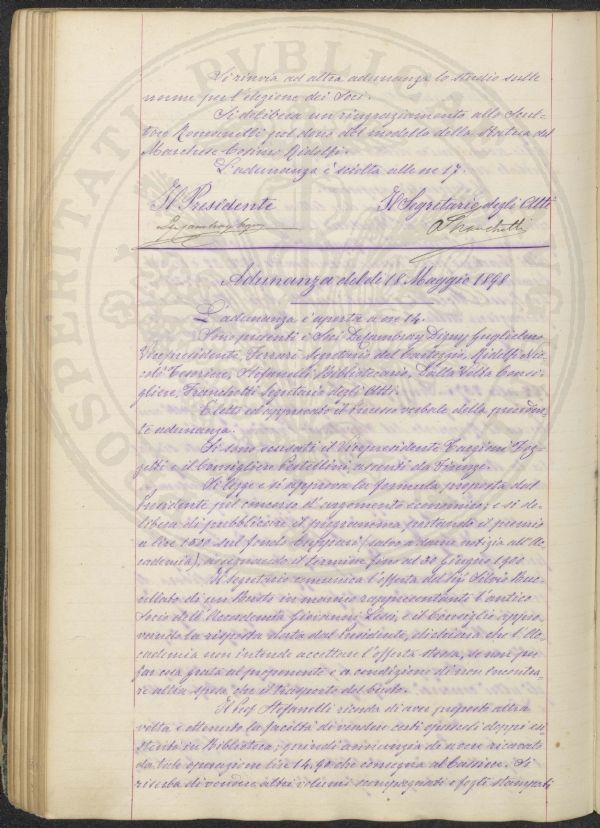 Si rinvia ad altra adunanza lo studio sulle
norme per l'elezione dei Soci.
Si delibera un ringraziamento allo Scul-
tore Romanelli pel dono del modello della Statua del
Marchese Cosimo Ridolfi.
L'adunanza è sciolta alle ore 17.
Il Presidente Il Segretario degli Atti
Adunanza del dì 18 Maggio 1898
L'adunanza è aperta a ore 14.
Sono presenti i Soci DeCambray Digny Guglielmo
Vicepresidente, Ferrari Segretario del Carteggio, Ridolfi Nic-
colò Tesoriere, Stefanelli Bibliotecario, Consi-
gliere, Franchetti Segretario degli Atti.
È letto ed approvato il processo verbale della preceden-
te adunanza.
Si sono scusati il Vicepresidente Targioni Toz-
zetti e il Consigliere Pestellini, assenti da Firenze.
Si legge e si approva la formula proposta dal
Presidente pel concorso d'argomento economico; e si de-
libera di pubblicare il programma, portando il premio
a lire sul fondo (salvo a darne notizia all'Ac-
cademia), assegnando il termine fino al 30 Giugno 1900
Il Segretario comunica l'offerta del Sig. Silvio
di un Busto in marmo rappresentante l'antico
Socio dell'Accademia Giovanni e il Consiglio appro-
vando la risposta data dal Presidente, dichiara che l'Ac-
cademia non intende accettare l'offerta stessa, se non per
far cosa grata al proponente e a condizione di non incontra-
re altra spesa che il trasporto del busto.
Il Prof. Stefanelli ricorda di aver proposto altra
volta e ottenuto la facoltà di vendere certi opuscoli doppi esi-
stenti in Biblioteca; quindi annunzia di avere ricavato
da tale operazione lire 14.90 che consegna al Cassiere. Si
riserba di vendere altri volumi scompagnati e fogli stampati